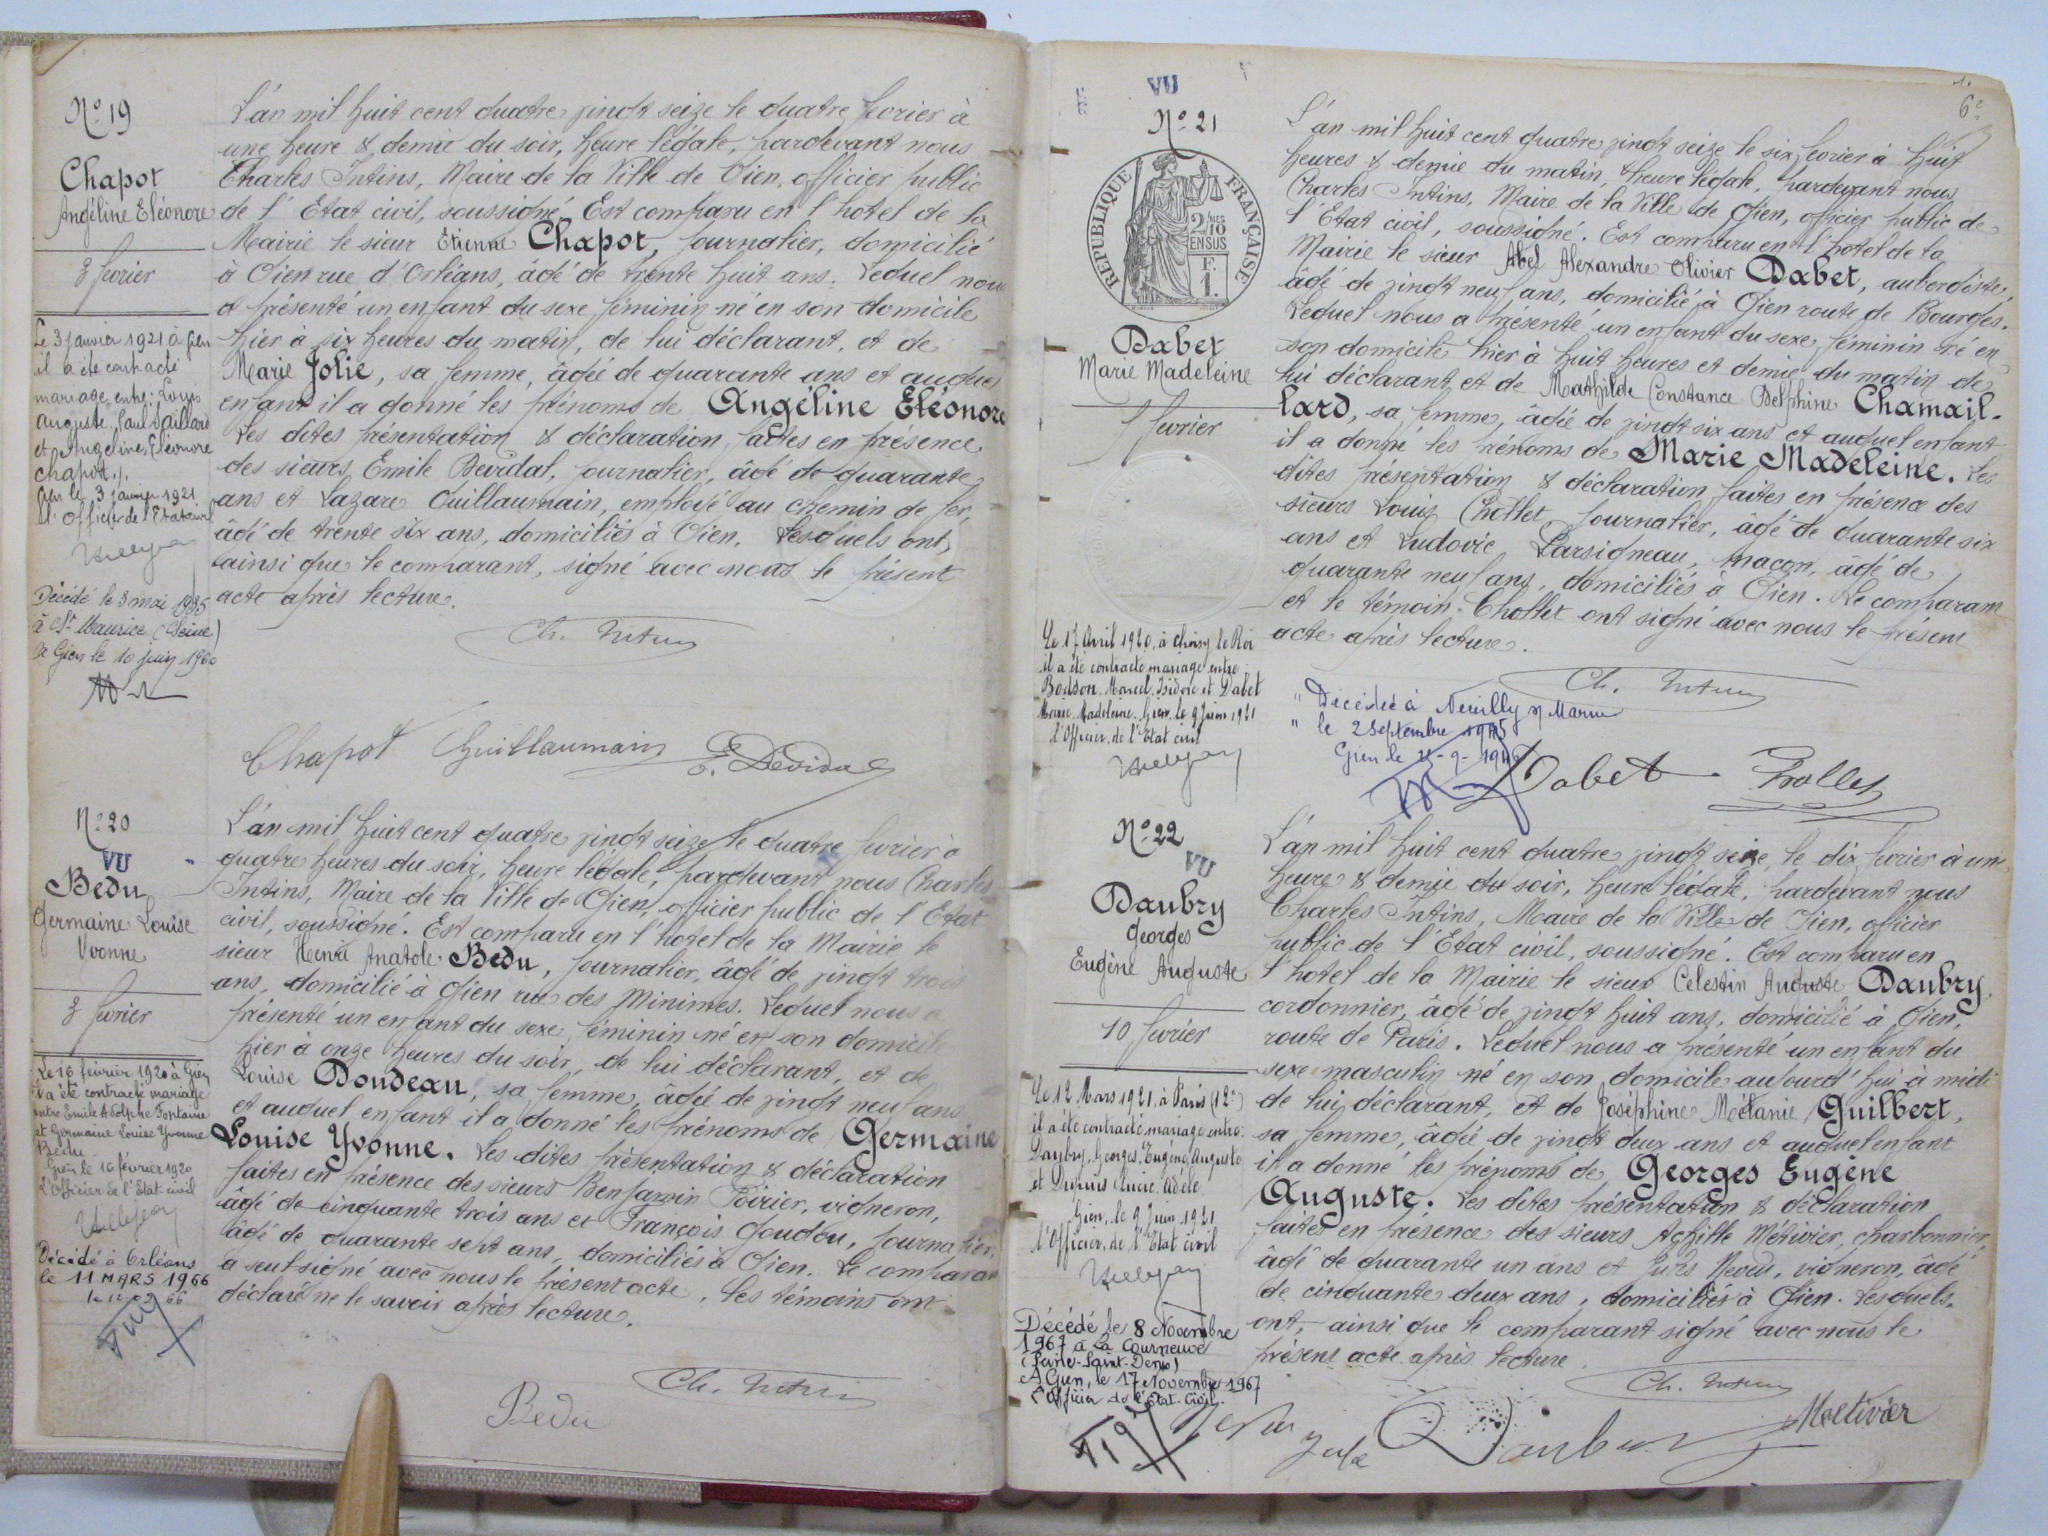 N° 19
Chapot
Angéline Eléonore
3 février
Le 3 janvier 1921 à Gien
il a été contracté
mariage entre : Louis
Auguste Paul
et Angéline Eléonore
Chapot.
Gien le 3 janvier 1921
L'officier de l'Etat civil
Décédé le 3 mai 1935
à St Maurice (Seine)
Gien le 10 juin 1960
L'an mil huit cent quatre vingt seize le quatre février à
une heure & demie du soir, heure légale, pardevant nous
Charles Intins, Maire de la Ville de Gien, officier public
de l'Etat civil, soussigné. Est comparu en l'hotel de la
Mairie le sieur Etienne Chapot, journalier, domicilié
à Gien rue d'Orléans, âgé de trente huit ans. Lequel nous
a présenté un enfant du sexe féminin né en son domicile
hier à six heures du matin, de lui déclarant, et de
Marie Jolie, sa femme, âgée de quarante ans et auquel
enfant il a donné les prénoms de Angéline Eléonore
Les dites présentation & déclaration faites en présence
des sieurs Emile Devidal, journalier, âgé de quarante
ans et Lazare Guillaumain, employé au chemin de fer,
âgé de trente six ans, domiciliés à Gien. Lesquels ont,
ainsi que le comparant, signé avec nous le présent
acte après lecture.
Ch. Intins
Chapot Guillaumain E. Devidal
N° 20
VU
Bedu
Germaine Louise
Yvonne
3 février
Le 16 février 1920 à Gien
il a été contracté mariage
entre Emile Adolphe Fontaine
et Germaine Louise Yvonne
Bedu
Gien le 16 février 1920
L'Officier de l'Etat civil
Décédé à Orléans
le 11 MARS 1966
L'an mil huit cent quatre vingt seize le quatre février à
quatre heures du soir, heure légale, pardevant nous Charles
Intins, Maire de la Ville de Gien, officier public de l'Etat
civil, soussigné. Est comparu en l'hotel de la Mairie le
sieur Henri Anatole Bedu, journalier, âgé de vingt trois
ans, domicilié à Gien rue des Minimes. Lequel nous a
présenté un enfant du sexe féminin né en son domicile
hier à onze heures du soir, de lui déclarant, et de
Louise Doudeau, sa femme, âgée de vingt neuf ans
et auquel enfant il a donné les prénoms de Germaine
Louise Yvonne. Les dites présentation & déclaration
faites en présence des sieurs Benjamin Poirier, vigneron,
âgé de cinquante trois ans et François Goudou, journalier
âgé de quarante sept ans, domiciliés à Gien. Le comparant
a seul signé avec nous le présent acte, les témoins ont
déclaré ne le savoir après lecture.
Ch. Intins
Bedu
6e
VU
N° 21
REPUBLIQUE FRANÇAISE
2/10 EN SUS
F.
1.
Dabet
Marie Madeleine
5 février
Le 17 Avril 1920, à Choisy le Roi
il a été contracté mariage entre
Bodson Marcel Isidore et Dabet
Marie Madeleine. Gien le 9 Juin 1921
l'Officier de l'Etat civil
L'an mil huit cent quatre vingt seize le six février à huit
heures & demie du matin, heure légale, pardevant nous
Charles Intins, Maire de la Ville de Gien, officier public de
l'Etat civil, soussigné. Est comparu en l'hotel de la
Mairie le sieur Abel Alexandre Olivier Dabet, aubergiste,
âgé de vingt neuf ans, domicilié à Gien route de Bourges.
Lequel nous a présenté un enfant du sexe féminin né en
son domicile hier à huit heures et demie du matin de
lui déclarant, et de Mathilde Constance Delphine Chamail-
lard, sa femme, âgée de vingt six ans et auquel enfant
il a donné les prénoms de Marie Madeleine. Les
dites présentation & déclaration faites en présence des
sieurs Louis Chollet journalier, âgé de quarante six
ans et Ludovic Parsigneau, maçon, âgé de
quarante neuf ans, domiciliés à Gien. Le comparant
et le témoin Chollet ont signé avec nous le présent
acte après lecture.
Ch. Intins
Décédée à Neuilly s/ Marne
le 2 Septembre 1945
Gien le
Dabet Chollet
N° 22
VU
Daubry
Georges
Eugène Auguste
10 février
Le 12 Mars 1921, à Paris (12e)
il a été contracté mariage entre
Daubry, Georges, Eugène, Auguste
et Dupuis Lucie Adèle
Gien, le 9 Juin 1921
l'Officier de l'Etat civil
Décédé le 8 Novembre
1967 à La Courneuve
(Seine-Saint-Denis)
A Gien, le 17 Novembre 1967
L'Officier de l'Etat-Civil
L'an mil huit cent quatre vingt seize, le dix février à une
heure & demie du soir, heure légale, pardevant nous
Charles Intins, Maire de la Ville de Gien, officier
public de l'Etat civil, soussigné. Est comparu en
l'hotel de la Mairie le sieur Celestin Auguste Daubry
cordonnier, âgé de vingt huit ans, domicilié à Gien,
route de Paris. Lequel nous a présenté un enfant du
sexe masculin né en son domicile aujourd'hui à midi
de lui déclarant, et de Joséphine Mélanie Guilbert,
sa femme, âgée de vingt deux ans et auquel enfant
il a donné les prénoms de Georges Eugène
Auguste. Les dites présentation & déclaration
faites en présence des sieurs Achille Métivier, charbonnier
âgé de quarante un ans et Jules Neveu, vigneron, âgé
de cinquante deux ans, domiciliés à Gien. Lesquels
ont, ainsi que le comparant signé avec nous le
présent acte après lecture.
Ch. Intins
Jule Daubry Metivier